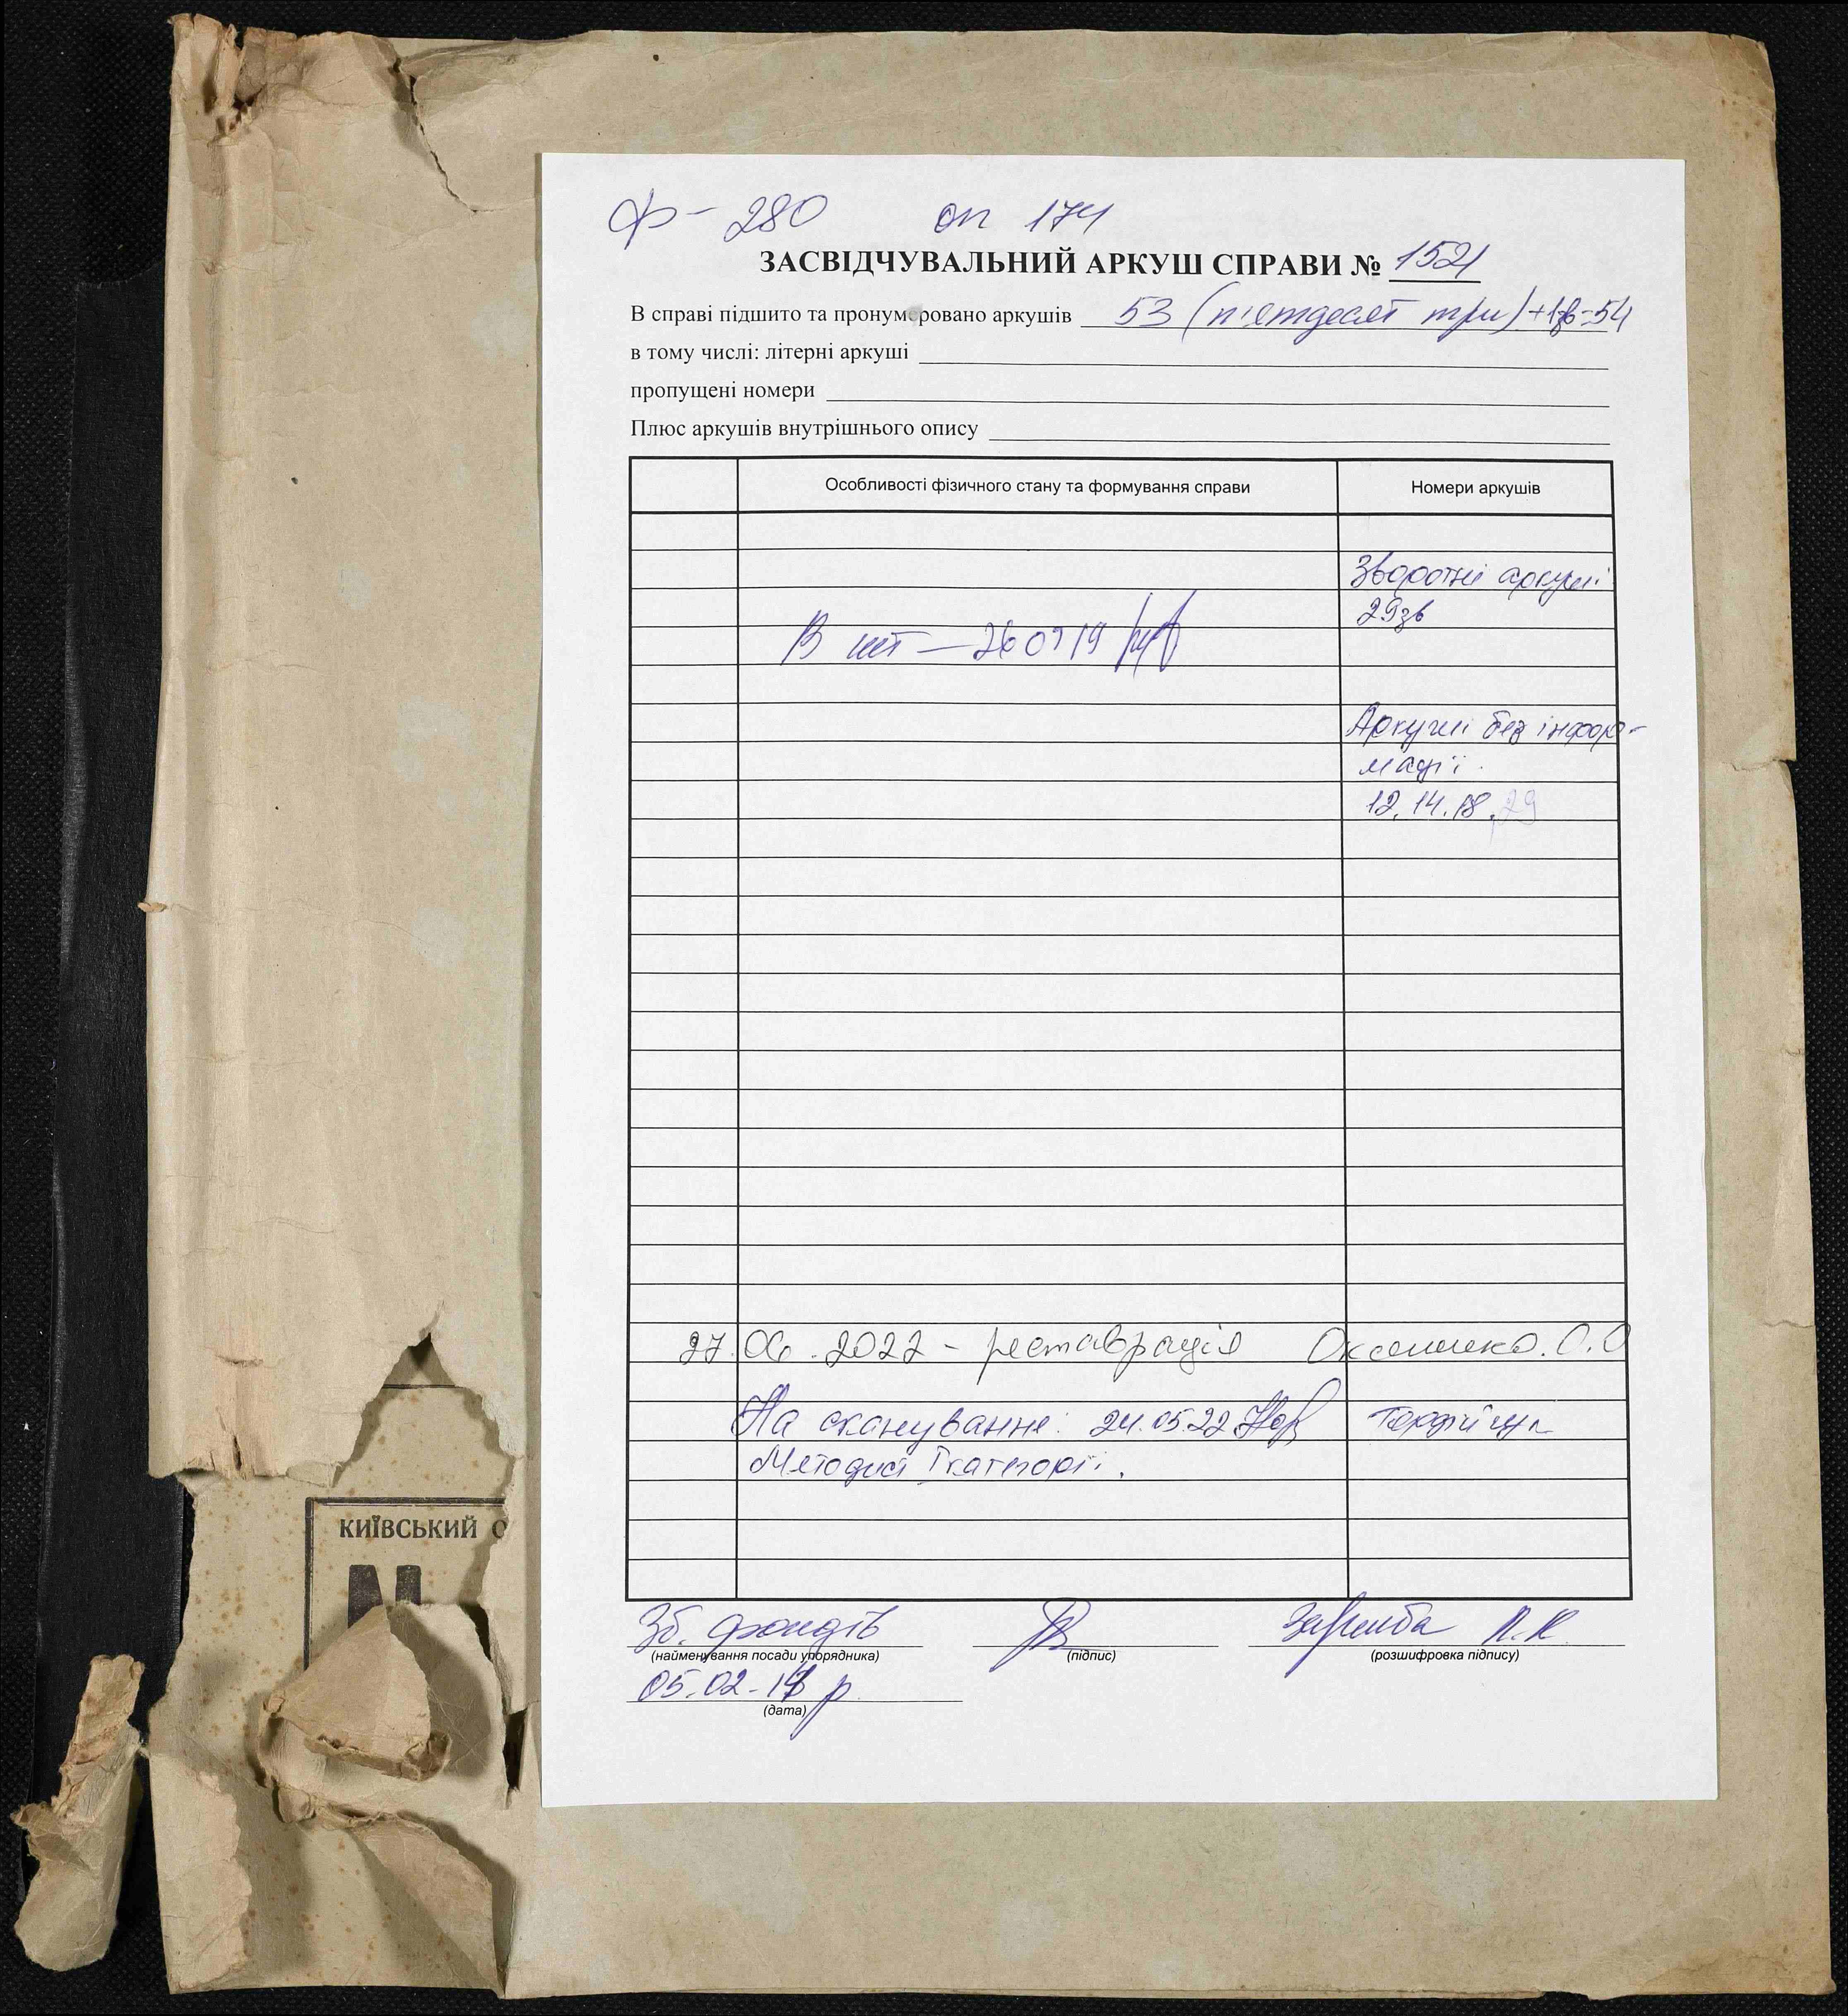 Ф - 280 оп 174
ЗАСВІДЧУВАЛЬНИЙ АРКУШ СПРАВИ № 1521
В справі підшито та пронумеровано аркушів 53 (п'ятдесят три) +1зв=54
в тому числі: літерні аркуші
пропущені номери
Плюс аркушів внутрішнього опису
Особливості фізичного стану та формування справи Номери аркушів
Зворотні аркуші
29зв
В шт — 260719
Аркуші без інфор-
мації.
12. 14. 18. 29
27.06.2022 - реставрація Оксененко. О.О
На сканування: 24.05.22
Методист І категорії.
КИЇВСЬКИЙ О
Зб. фондів
(найменування посади упорядника) (підпис) (розшифровка підпису)
05.02-18 р
(дата)